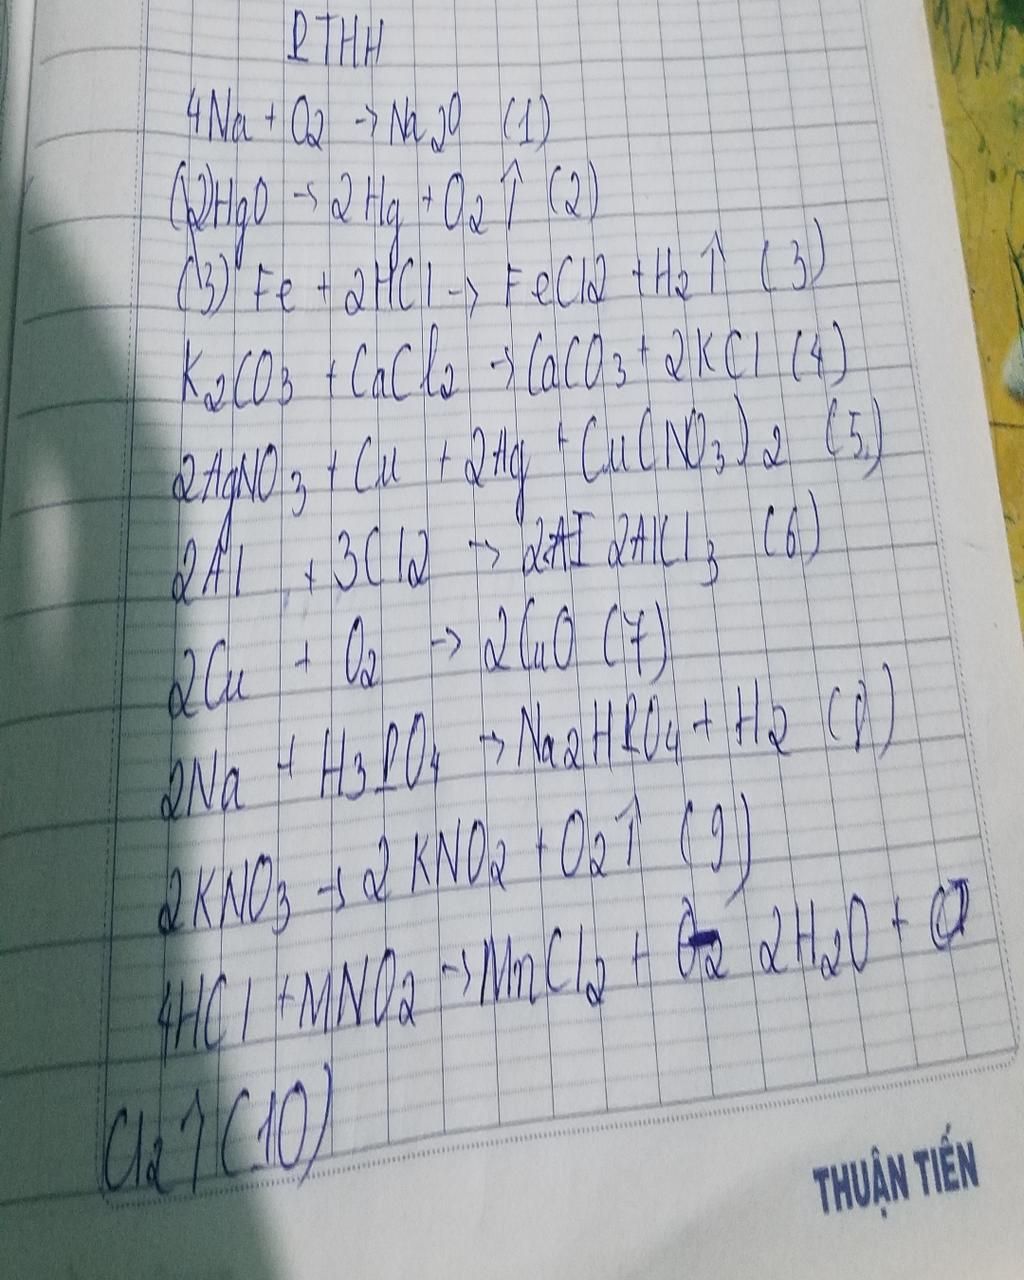 PTHH
4Na + O2 → Na2O (1)
(2)HgO → 2Hg + O2 ↑ (2)
(3) Fe + 2HCl → FeCl2 + H2 ↑ (3)
K2CO3 + CaCl2 → CaCO3 + 2KCl (4)
2AgNO3 + Cu + 2Ag + Cu(NO3)2 (5)
2Al + 3Cl2 → 2AI 2AlCl3 (6)
2Cu + O2 → 2CuO (7)
2Na + H3PO4 → Na2HPO4 + H2 (8)
2KNO3 → 2KNO2 + O2 ↑ (9)
4HCl + MNO2 → MnCl2 + 2H2O +
Cl2 ↑ (10)
THUẬN TIẾN